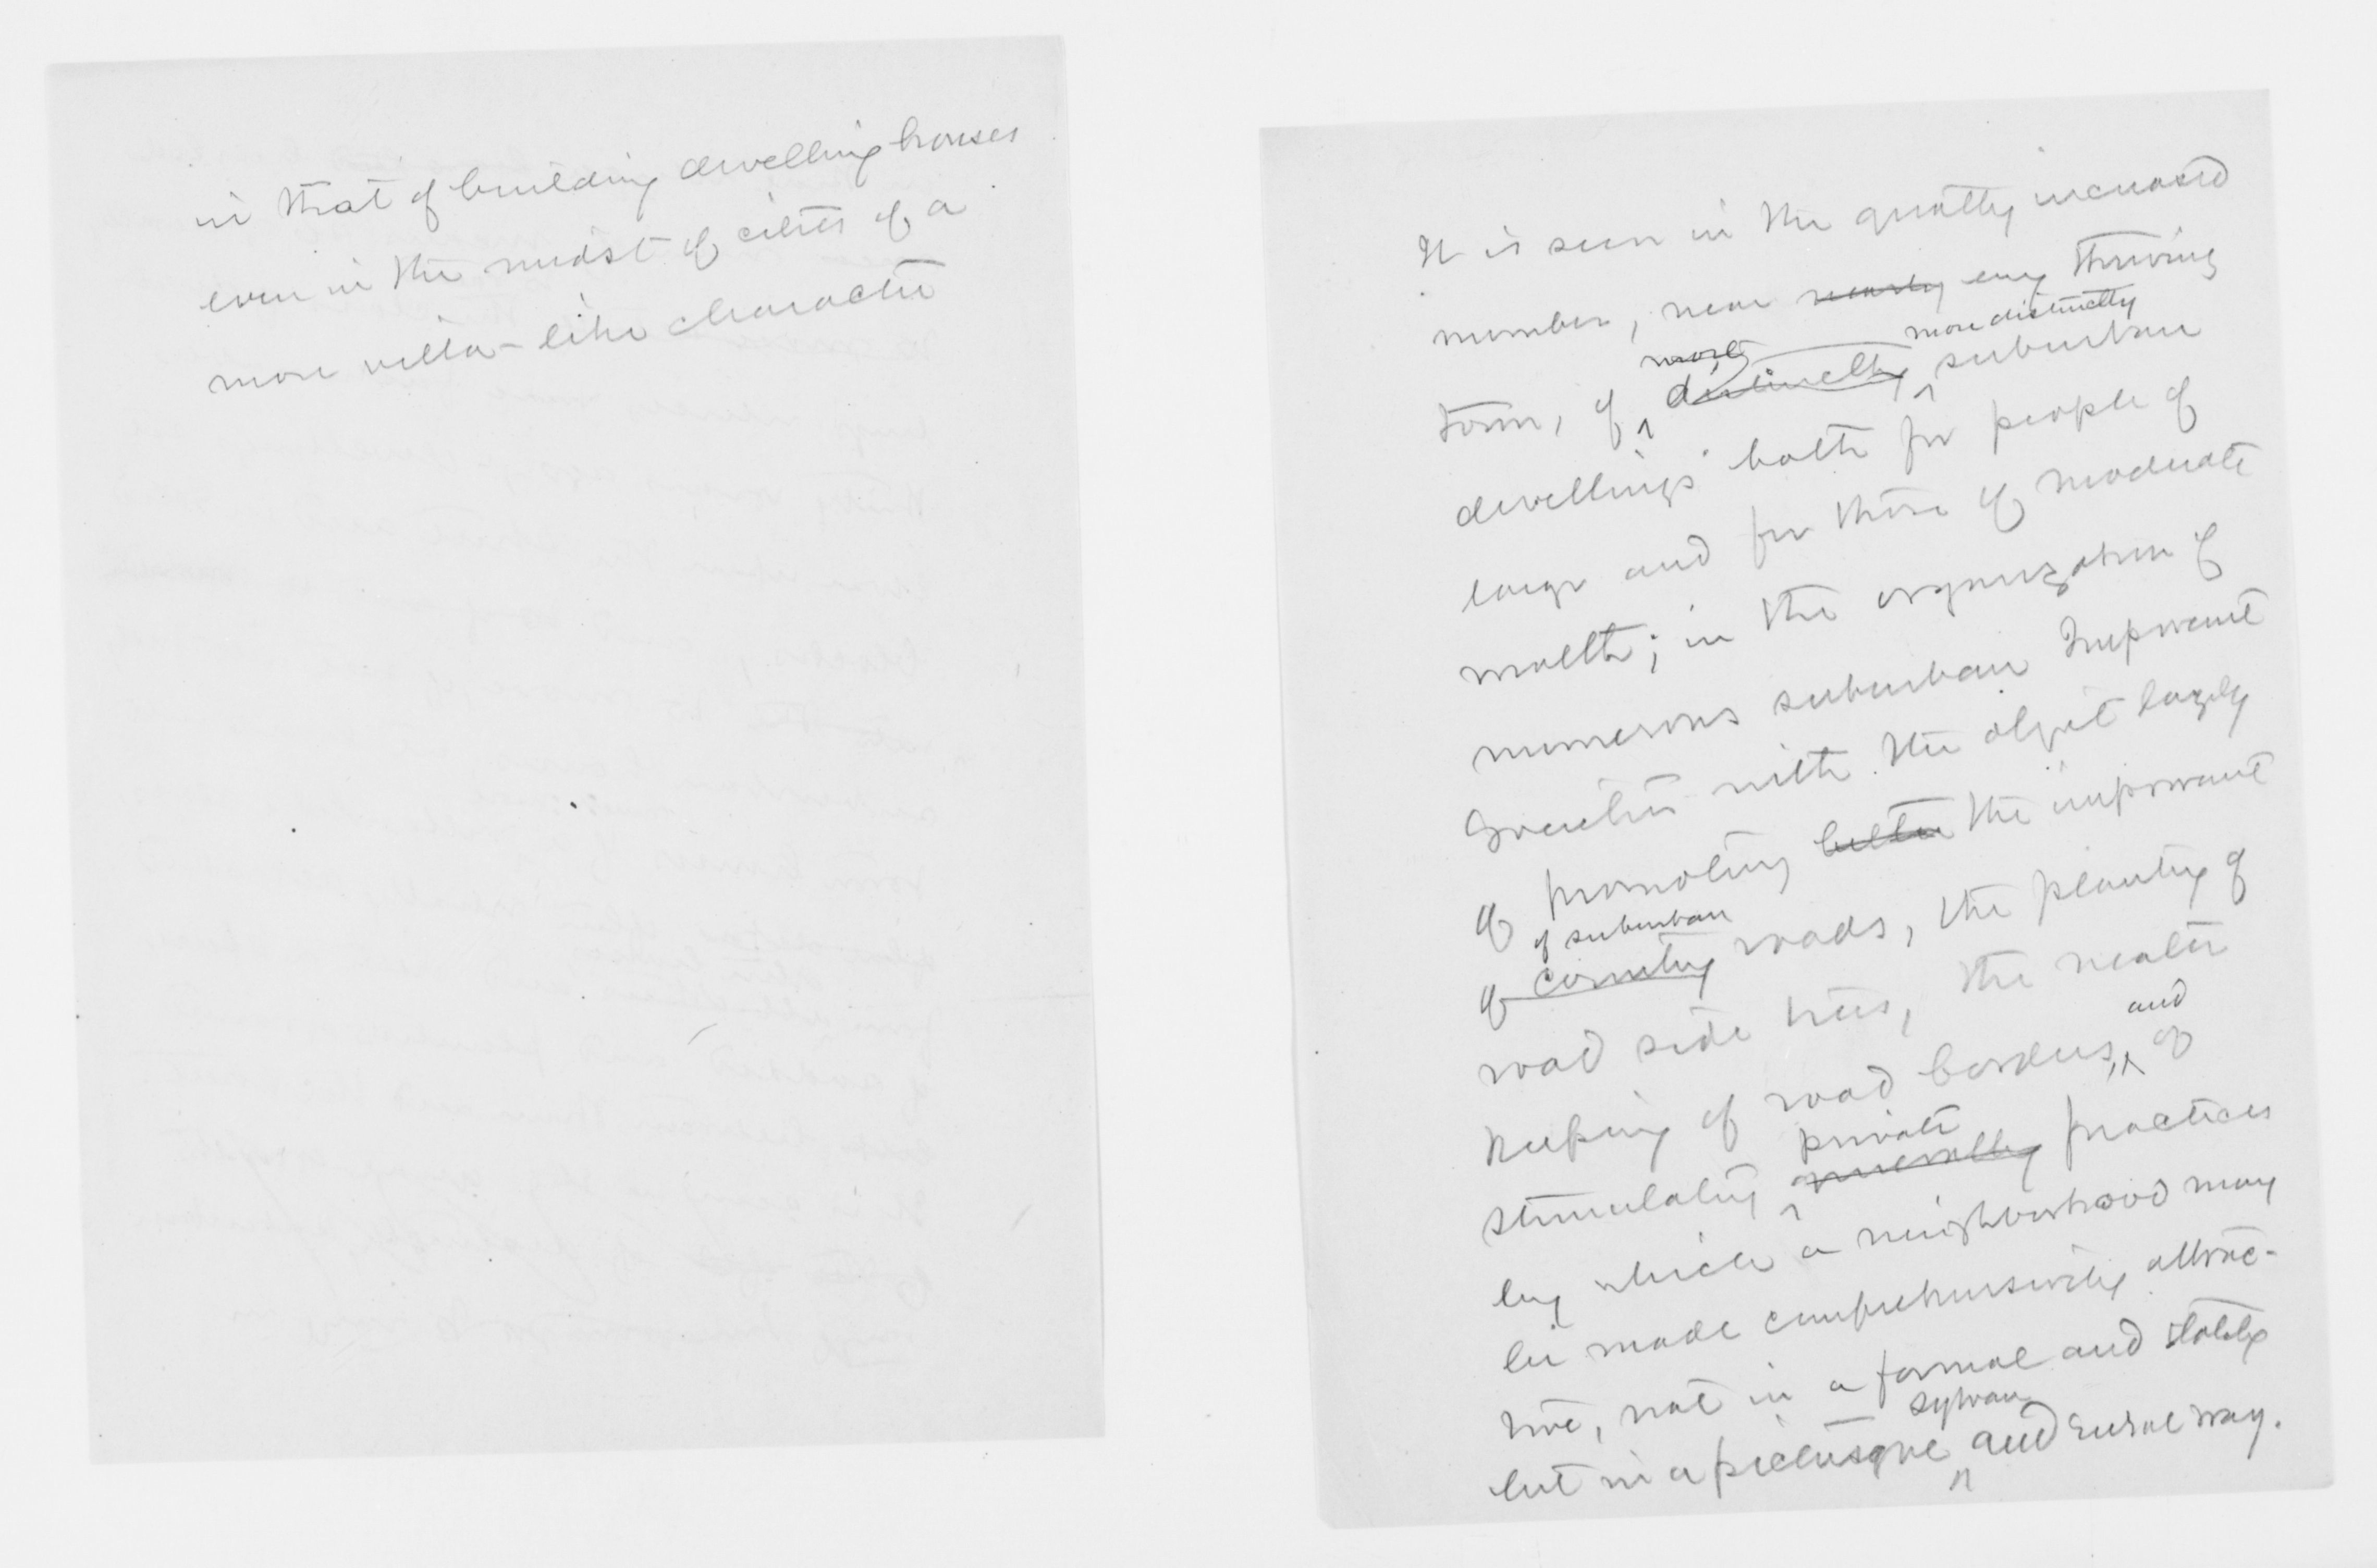 in that of building dwelling houses
even in the midst of cities of a
more villa-like character
It is seen in the greatly increased
number, near nearly every thriving
more distinctly
town, of more distinctly suburban
dwellings both for people of
large and for those of moderate
wealth; in the organization of
numerous suburban Improvement
Societies with the object largely
of promoting better the improvement
of suburban
of country roads, the planting of
road side trees, the neater
and
keeping of road borders, of
private
stimulating generally practices
by which a neighborhood may
be made comprehensively attrac-
tive, not in a formal and stately
sylvan
but in a picturesque and rural way.